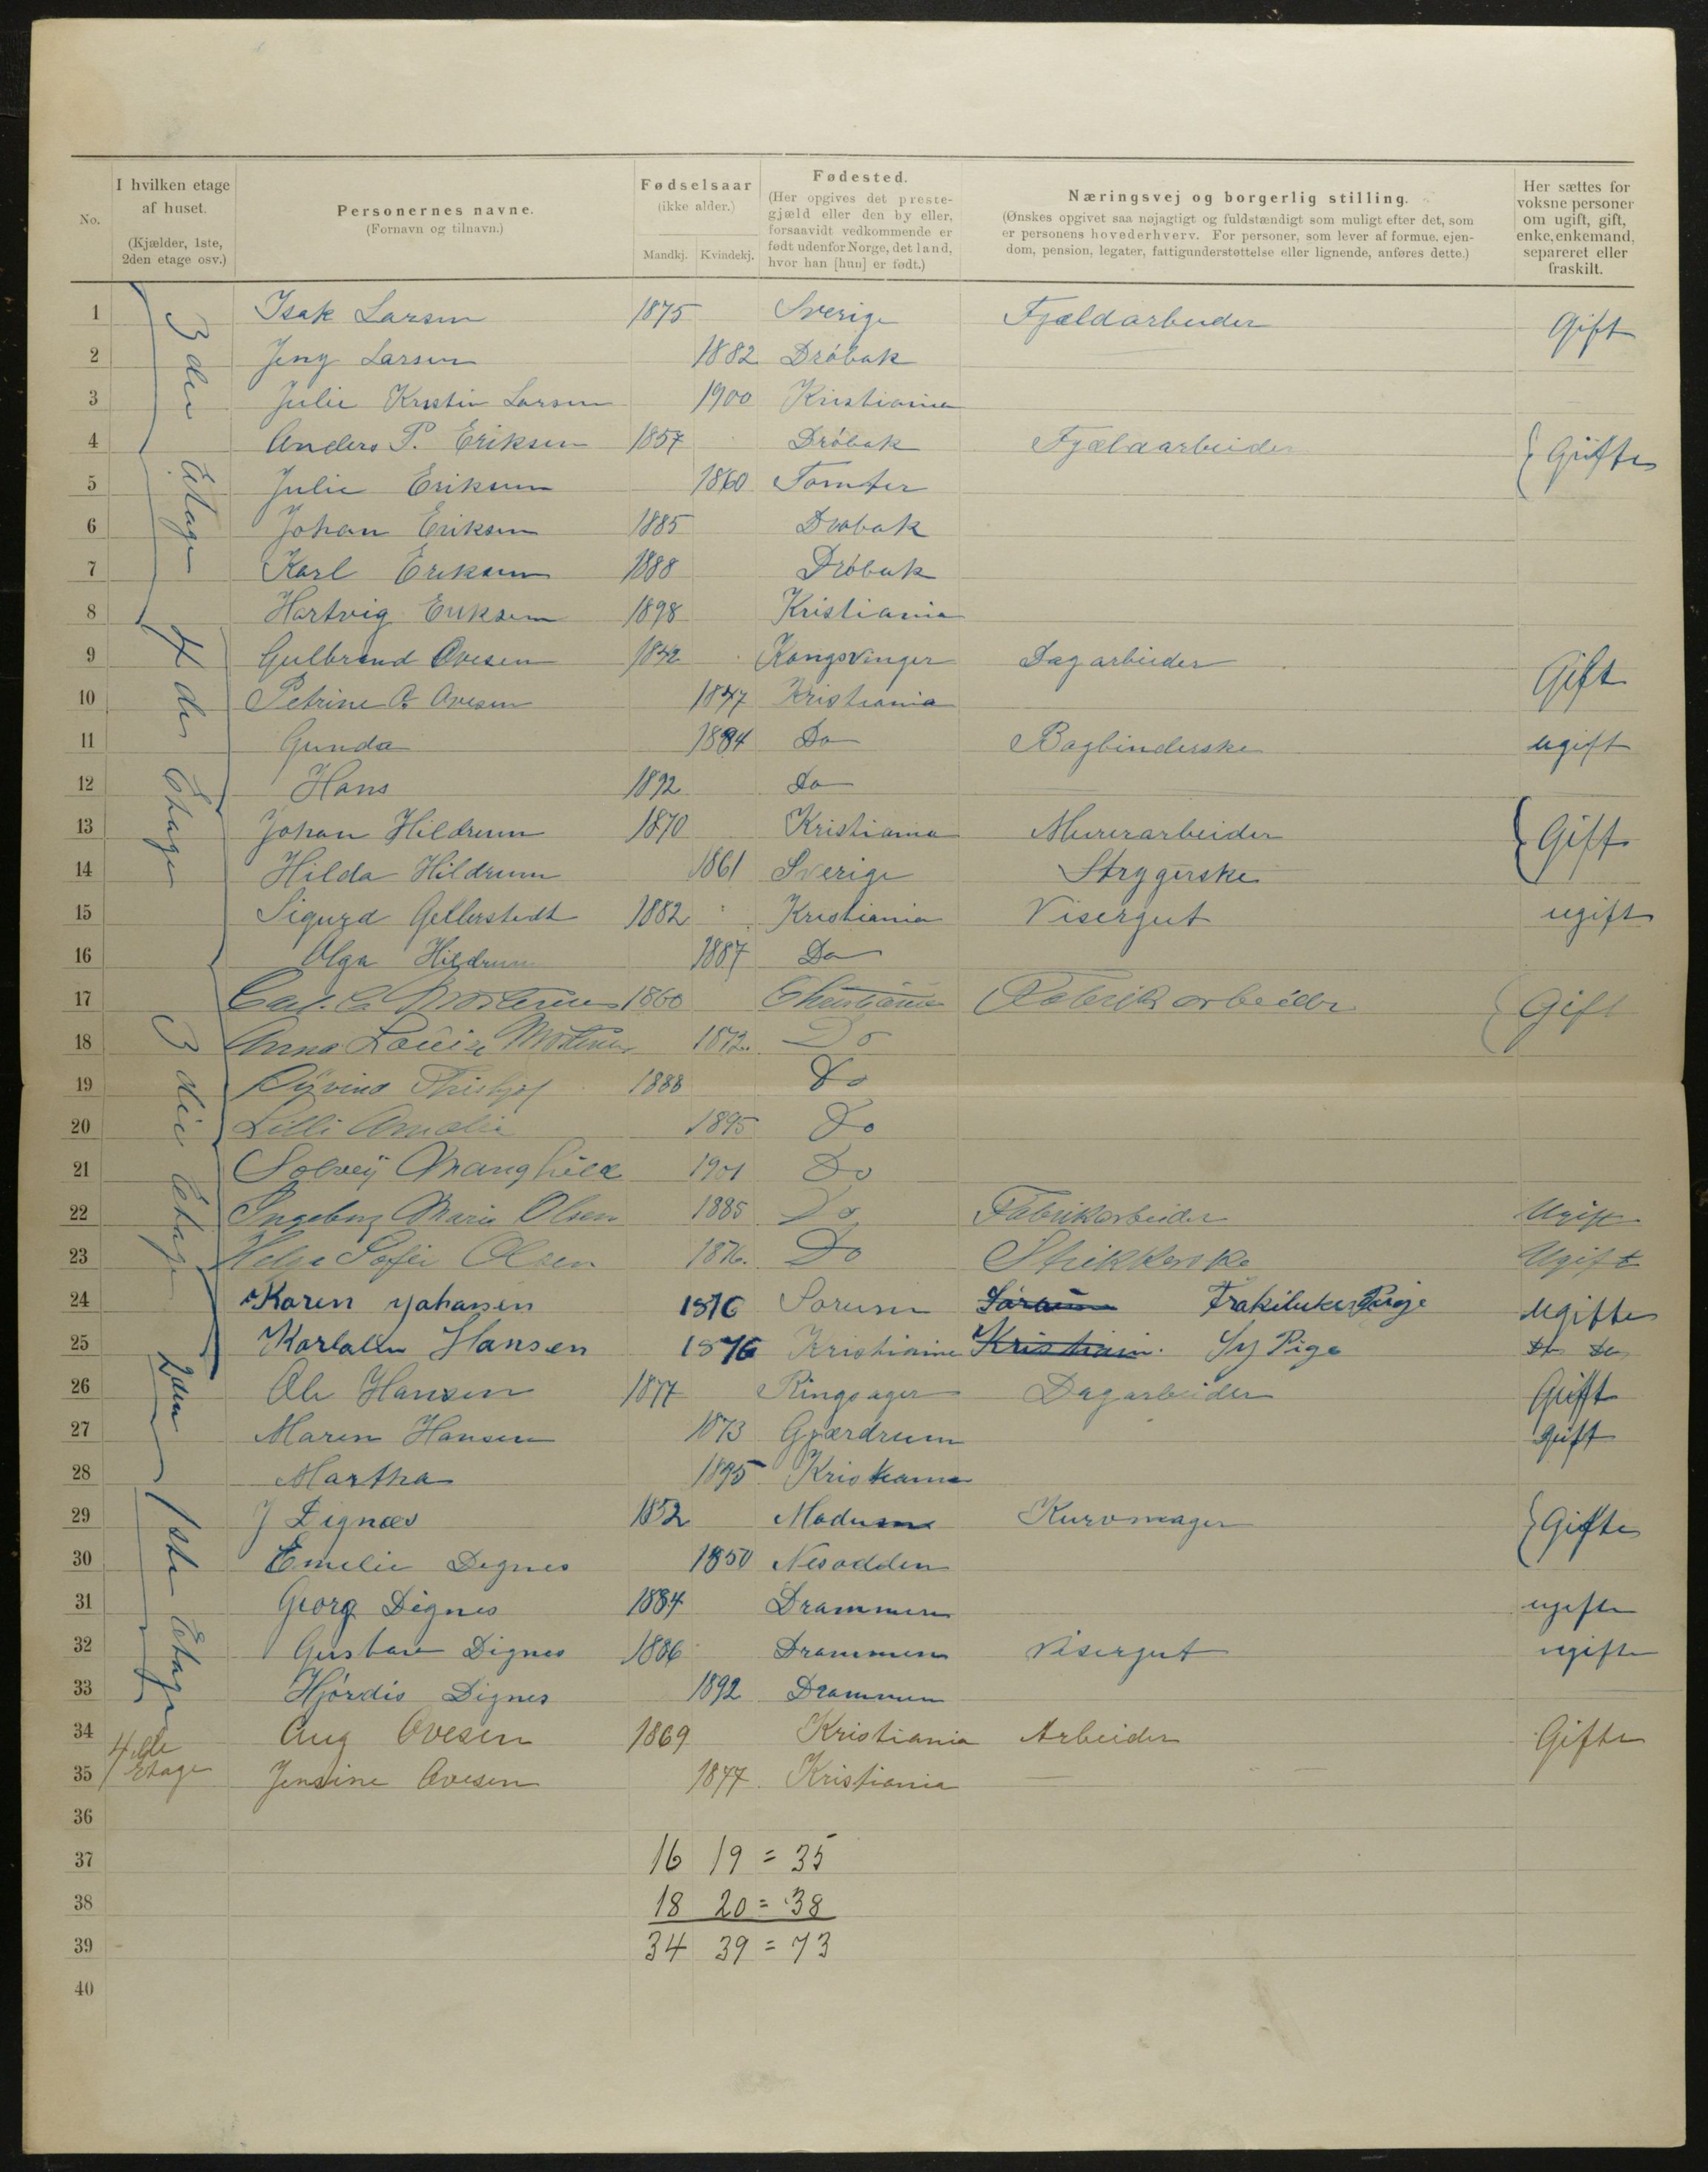 No.
I hvilken etage af huset.
(Kjælder, 1ste, 2den etage osv.)
Personernes navne.
(Fornavn og tilnavn.)
Fødselsaar
(ikke alder.)
Mandkj. Kvindekj.
Fødested.
(Her opgives det preste-
gjæld eller den by eller,
forsaavidt vedkommende er
født udenfor Norge, det land,
hvor han [hun] er født.)
Næringsvej og borgerlig stilling.
(Ønskes opgivet saa nøjagtigt og fuldstændigt som muligt efter det, som
er personens hovederhverv. For personer, som lever af formue, ejen-
dom, pension, legater, fattigunderstøttelse eller lignende, anføres dette.)
Her sættes for
voksne personer
om ugift, gift,
enke, enkemand,
separeret eller
fraskilt.
3die Etage
1 Isak Larsen 1875 Sverige Fjældarbeider Gift
2 Jeny Larsen 1882 Dröbak
3 Julie Kristin Larsen 1900 Kristiania
4 Anders P. Eriksen 1857 Dröbak Fjældarbeider Gifte
5 Julie Eriksen 1860 Tomter
6 Johan Eriksen 1885 Drobak
7 Karl Eriksen 1888 Dröbak
8 Hartvig Eriksen 1898 Kristiania
4de Etage
9 Gulbrand Ovesen 1842 Kongsvinger Dagarbeider Gift
10 Petrine O. Ovesen 1847 Kristiania
11 Gunda 1884 Do Bogbinderske ugift
12 Hans 1892 Do
13 Johan Hildrum 1870 Kristiania Murerarbeider Gift
14 Hilda Hildrum 1861 Sverige Strygerske
15 Sigurd Gellerstedt 1882 Kristiania Visergut ugift
16 Olga Hildrum 1887 Do
3die Etage
17 Carl C Mortensen 1860 Christiania Fabrikarbeider Gift
18 Anna Louise Mortensen 1872 Do
19 Öyvind 1888 Do
20 Lilli Amalie 1895 Do
21 Solveij Manghild 1901 Do
22 Ingeborg Marie Olsen 1885 Do Fabrikarbeider Ugift
23 Helga Sofie Olsen 1876 Do Strikkerske Ugift
24 Karen Johansen 1876 Sorum Sorum Pige Ugifte
25 Hansen 1876 Kristiania Kristiania Sy Pige Do Do
2den
26 Ole Hansen 1877 Ringsager Dagarbeider Gift
27 Maren Hansen 1873 Gjærdrum gift
28 Martha 1895 Kristiania
1ste Etage
29 J Dignæs 1852 Modum Kurvmager Gifte
30 Emelie Dignes 1850 Nesodden
31 Georg Dignes 1884 Drammen ugifte
32 Gustav Dignes 1886 Drammen Visergut ugifte
33 Hjördis Dignes 1892 Drammen
4de Etage
34 Aug Ovesen 1869 Kristiania Arbeider Gifte
35 Jensine Ovesen 1877 Kristiania —
36
37 16 19 = 35
38 18 20 = 38
39 34 39 = 73
40